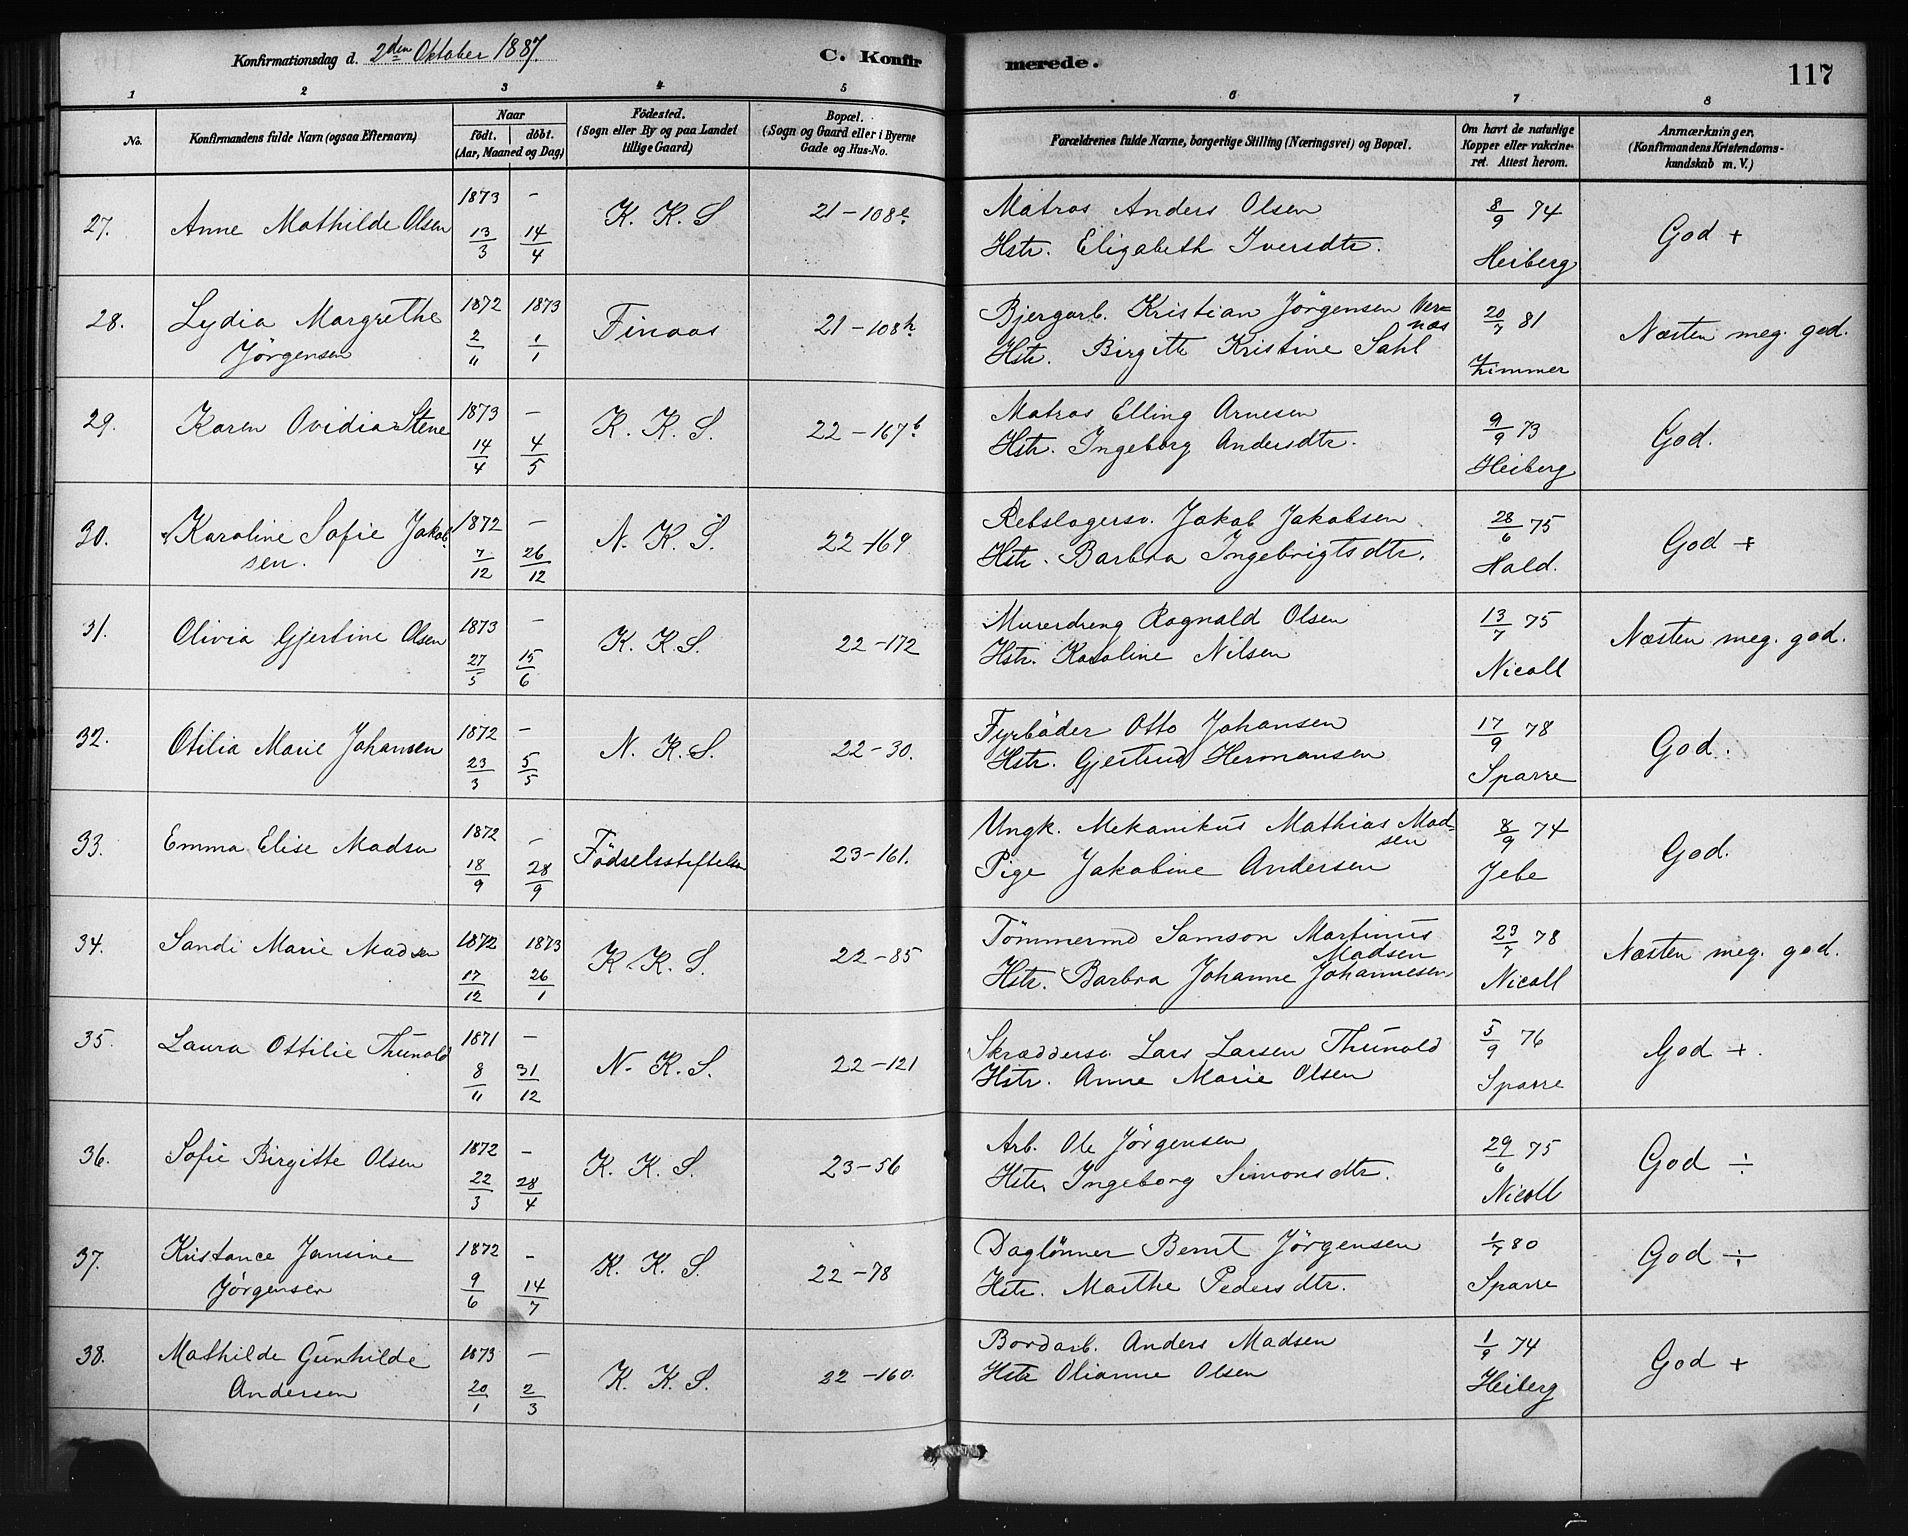 Konfirmationsdag d. 2den Oktober 1887. C. Konfirmerede. 117
1 2 3 4 5 6 7 8
No. Konfirmandens fulde Navn (ogsaa Efternavn) Naar født. døbt. (Aar, Maaned og Dag) Födested. (Sogn eller By og paa Landet tillige Gaard) Bopæl. (Sogn og Gaard eller i Byerne Gade og Hus-No. Forældrenes fulde Navne, borgerlige Stilling (Næringsvei) og Bopæl. Om havt de naturlige Kopper eller vakcineret. Attest herom. Anmærkninger, (Konfirmandens Kristendomskundskab m. V.)
27. Anne Mathilde Olsen 1873 13/3 – 14/4 K. K. S 21–108e. Matros Anders Olsen
Hstr. Elizabeth Iversdtr. 8/9 74 Heiberg God +
28. Lydia Margrethe Jørgensen 1872 2/11 1873 1/1 Finaas 21–108h. Bjergarb. Kristian Jørgensen Vernæs
Hstr. Birgitte Kristine Sahl 20/7 81 Zimmer Næsten meg. god.
29. Karen Ovidia Stene 1873 14/4 – 4/5 K. K. S. 22–167b Matros Elling Arnesen
Hstr. Ingeborg Andersdtr. 9/9 73 Heiberg God.
30. Karoline Sofie Jakobsen. 1872 7/12 – 26/12 N. K. S. 22–169 Rebslagersv. Jakob Jakobsen
Hstr. Barbra Ingebrigtsdtr. 28/6 75 Hald. God +
31. Olivia Gjertine Olsen 1873 27/5 – 15/6 K. K. S. 22–172 Murerdreng Ragnald Olsen
Hstr. Karoline Nilsen 13/7 75 Nicoll Næsten meg. god.
32. Otilia Marie Johansen 1872 23/3 – 5/5 N. K. S. 22–30. Fyrbøder Otto Johansen
Hstr. Gjertrud Hermansen 17/9 78 Sparre God.
33. Emma Elise Madsen 1872 18/9 – 28/9 Födselsstiftelsen 23–161. Ungk. Mekanikus Mathias Madsen
Pige Jakobine Andersen 8/9 74 Jebe God.
34. Sandi Marie Madsen 1872 17/12 1873 26/1 K. K. S. 22–85 Tømmermd Samson Martinus Madsen
Hstr. Barbra Johanne Johannesen 23/7 78 Nicoll Næsten meg. god.
35. Laura Ottilie Thunold 1871 8/11 – 31/12 N. K. S. 22–121 Skræddersv. Lars Larsen Thunold
Hstr. Anne Marie Olsen 5/9 76 Sparre God +.
36. Sofie Birgitte Olsen 1872 22/3 – 28/4 K. K. S. 23–56 Arb. Ole Jørgensen
Hstr. Ingeborg Simonsdtr. 29/6 75 Nicoll God ÷
37. Kristance Jansine Jørgensen 1872 9/6 – 14/7 K. K. S. 22–78 Daglønner Bernt Jørgensen
Hstr. Marthe Pedersdtr. 1/7 80 Sparre God ÷
38. Mathilde Gunhilde Andersen 1873 20/1 – 2/3 K. K. S. 22–160. Bordarb. Anders Madsen
Hstr Olianne Olsen 1/9 74 Heiberg God +